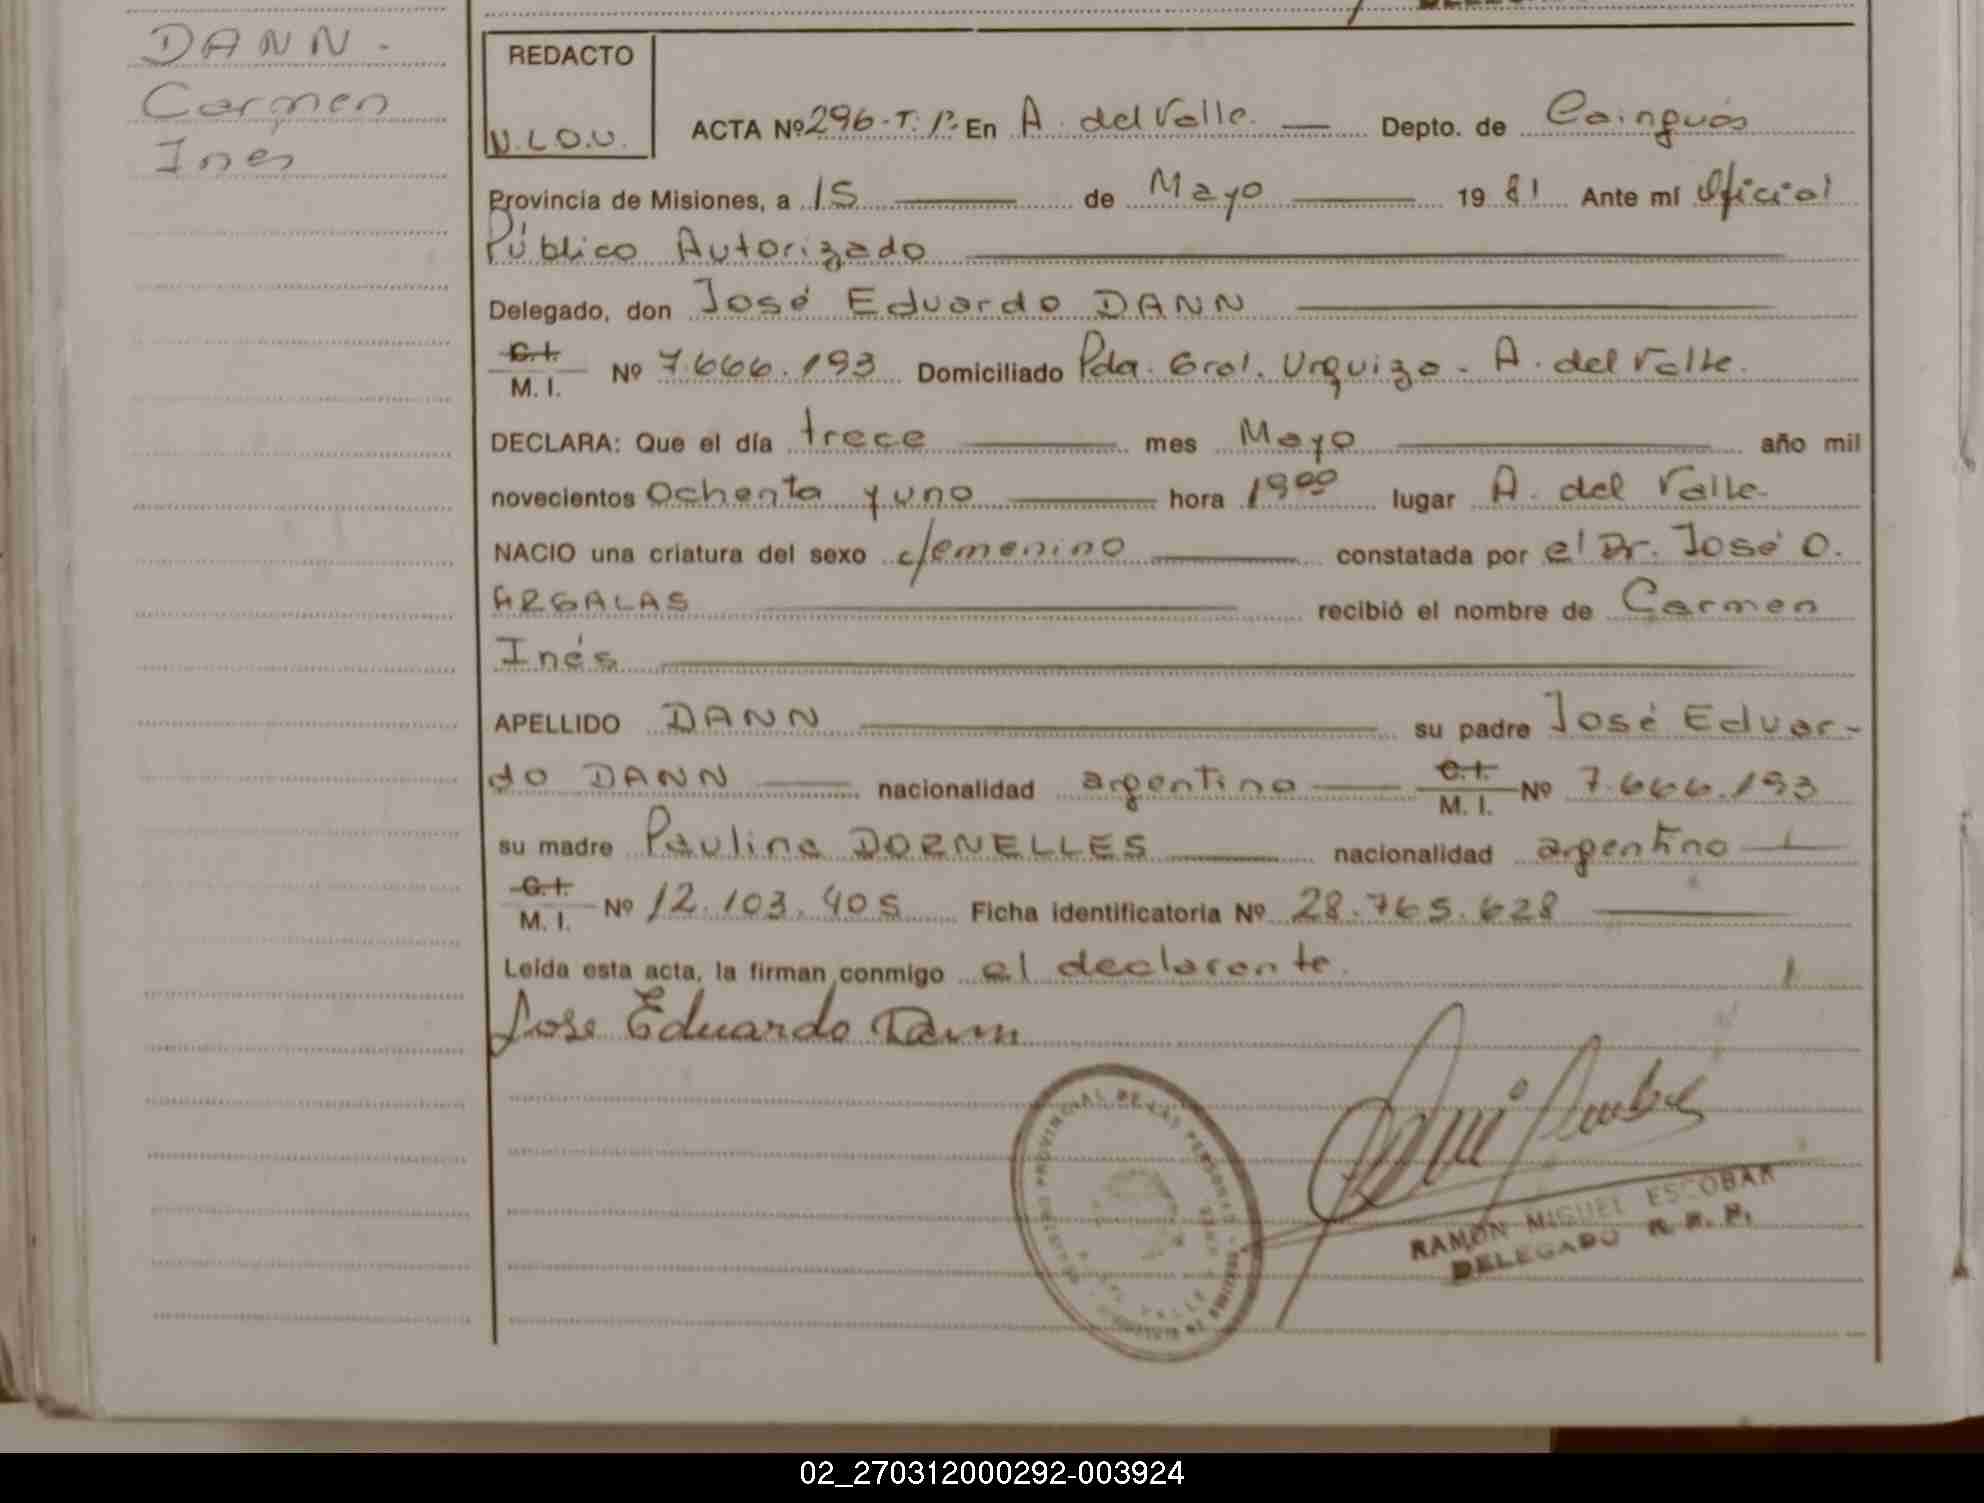 DANN.
Carmen
Ines
REDACTO
N.L.O.U.
ACTA Nº 296-T.1º- En A. del Valle. — Depto. de Cainguás
Provincia de Misiones, a 15 — de Mayo — 19 81 Ante mí Oficial
Público Autorizado
Delegado, don José Eduardo DANN
C.I.
M. I. Nº 7.666.193 Domiciliado Pda. Gral. Urquiza - A. del Valle.
DECLARA: Que el día trece — mes Mayo — año mil
novecientos Ochenta y uno — hora 19⁰⁰ lugar A. del Valle.
NACIO una criatura del sexo femenino — constatada por el Dr. José O.
ARGALAS — recibió el nombre de Carmen
Inés
APELLIDO DANN — su padre José Eduar-
do DANN — nacionalidad argentino — C.I. M. I. Nº 7.666.193
su madre Paulina DORNELLES — nacionalidad argentino —
C.I.
M. I. Nº 12.103.405 Ficha identificatoria Nº 28.765.628
Leída esta acta, la firman conmigo el declarante.
Jose Eduardo Dann
PROVINCIAL DE LAS PERSONAS
VALLE
RAMON MIGUEL ESCOBAR
DELEGADO R. R. P.
02_270312000292-003924